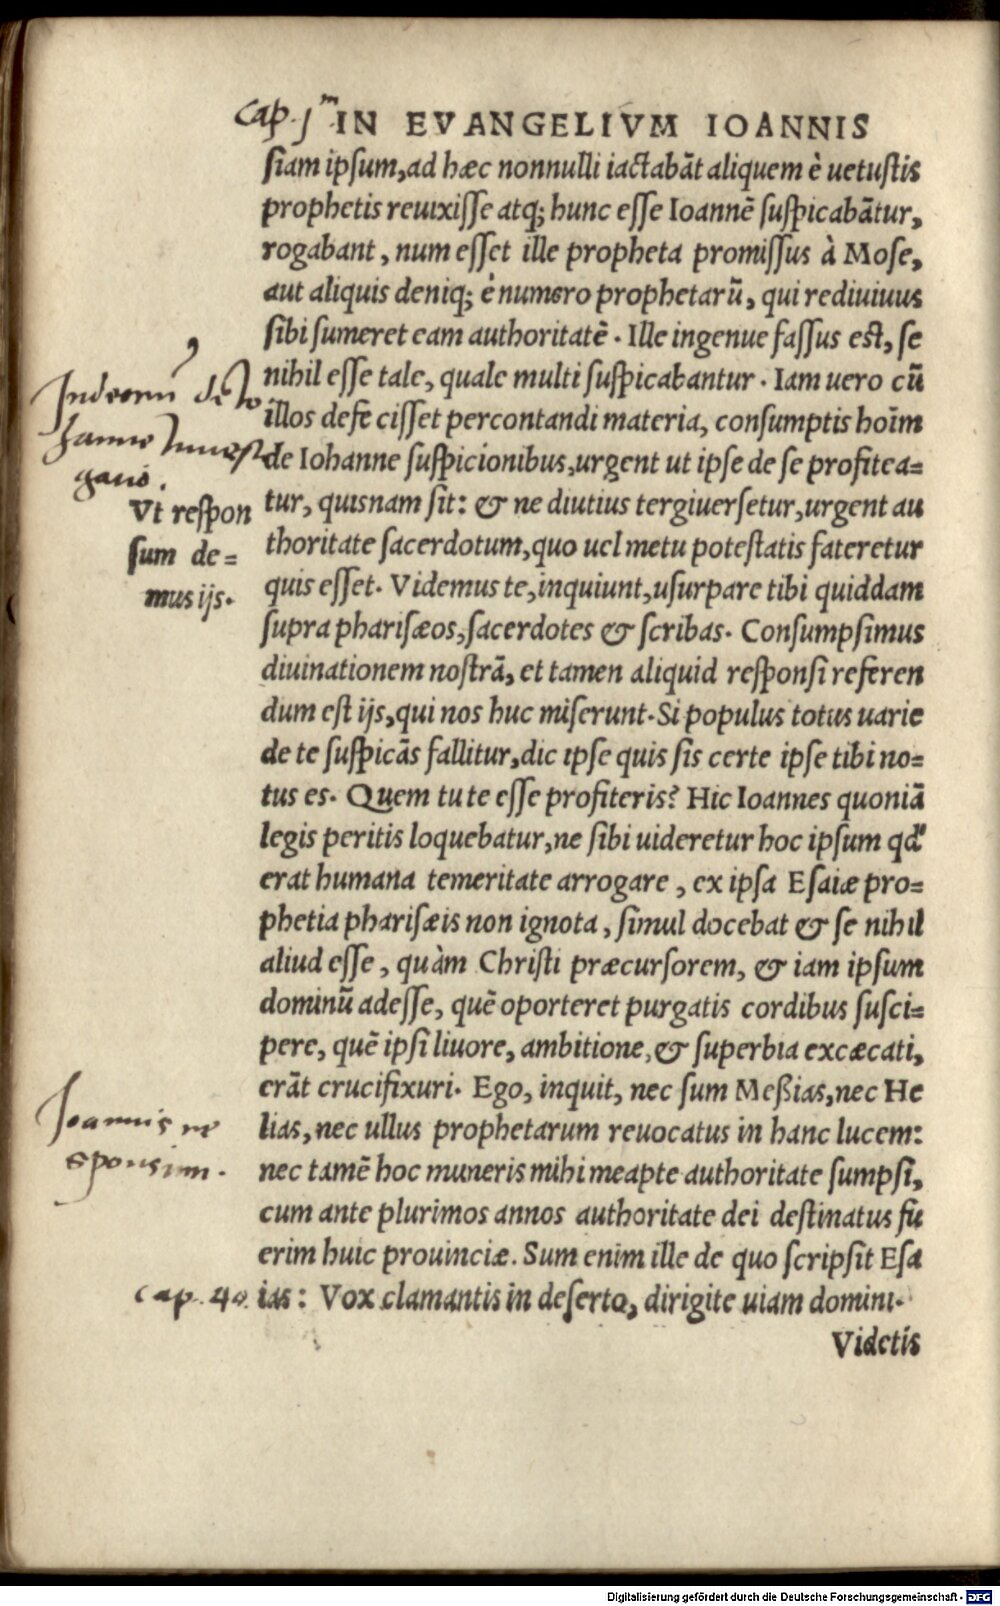 Cap. j^m IN EVANGELIVM IOANNIS
siam ipsum, ad hæc nonnulli iactabãt aliquem è uetustis
prophetis reuixisse atq; hunc esse Ioannẽ suspicabãtur,
rogabant, num esset ille propheta promissus à Mose,
aut aliquis deniq; è numero prophetarũ, qui rediuiuus
sibi sumeret eam authoritatẽ. Ille ingenue fassus est, se
nihil esse tale, quale multi suspicabantur. Iam uero cũ
illos defecisset percontandi materia, consumptis hoĩm
de Iohanne suspicionibus, urgent ut ipse de se profitea=
tur, quisnam sit: & ne diutius tergiuersetur, urgent au
thoritate sacerdotum, quo uel metu potestatis fateretur
quis esset. Videmus te, inquiunt, usurpare tibi quiddam
supra pharisæos, sacerdotes & scribas. Consumpsimus
diuinationem nostrã, et tamen aliquid responsi referen
dum est ijs, qui nos huc miserunt. Si populus totus uarie
de te suspicãs fallitur, dic ipse quis sis certe ipse tibi no=
tus es. Quem tu te esse profiteris? Hic Ioannes quoniã
legis peritis loquebatur, ne sibi uideretur hoc ipsum qd'
erat humana temeritate arrogare, ex ipsa Esaiæ pro=
phetia pharisæis non ignota, simul docebat & se nihil
aliud esse, quàm Christi præcursorem, & iam ipsum
dominũ adesse, quẽ oporteret purgatis cordibus susci=
pere, quẽ ipsi liuore, ambitione, & superbia excæcati,
erãt crucifixuri. Ego, inquit, nec sum Meßias, nec He
lias, nec ullus prophetarum reuocatus in hanc lucem:
nec tamẽ hoc muneris mihi meapte authoritate sumpsi,
cum ante plurimos annos authoritate dei destinatus fu
erim huic prouinciæ. Sum enim ille de quo scripsit Esa
ias: Vox clamantis in deserto, dirigite uiam domini.
Videtis
Vt respon
sum de=
mus ijs.
Ioannis re
sponsum.
Cap. 40.
Digitalisierung gefördert durch die Deutsche Forschungsgemeinschaft - DFG